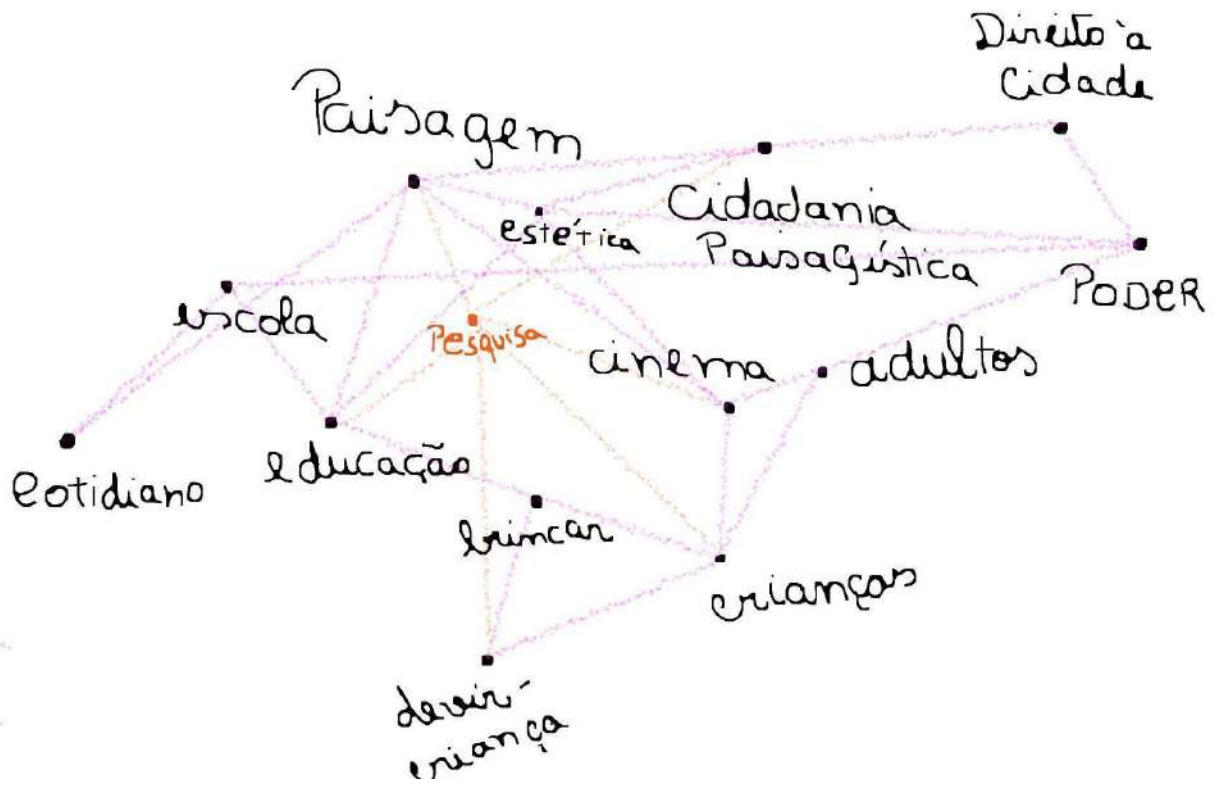 Direito à
Cidade
Paisagem
Cidadania
Paisagística
estética
PODER
escola
Pesquisa
cinema
adultos
educação
Cotidiano
brincar
crianças
devir-
criança